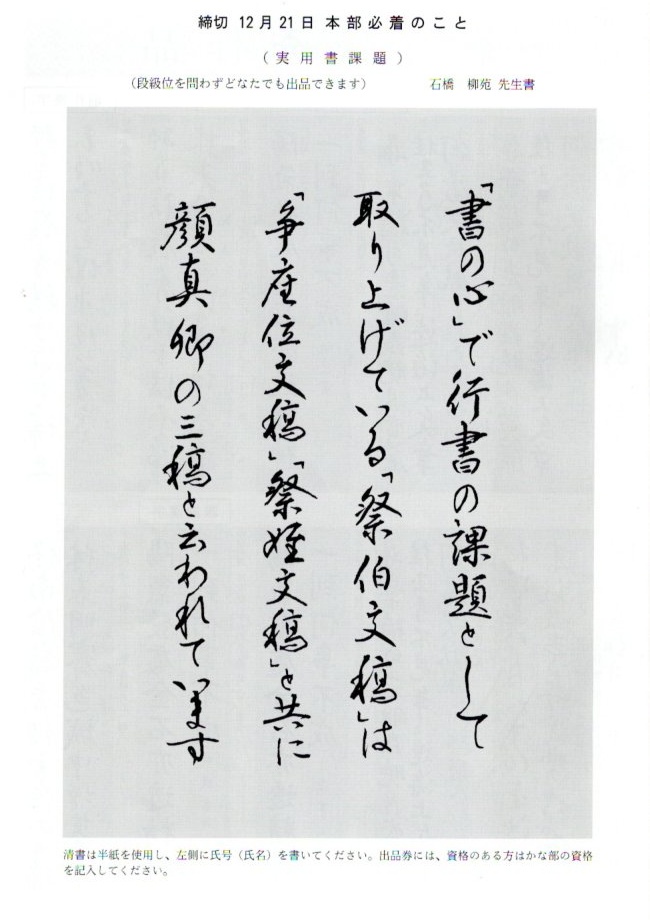 締切 12月21日 本部必着のこと
(実用書課題)
(段級位を問わずどなたでも出品できます) 石橋 柳苑 先生書
「書の心」で行書の課題として
取り上げている「祭伯文稿」は
「争座位文稿」「祭姪文稿」と共に
顔真卿の三稿と云われています
清書は半紙を使用し、左側に氏号(氏名)を書いてください。出品券には、資格のある方はかな部の資格
を記入してください。